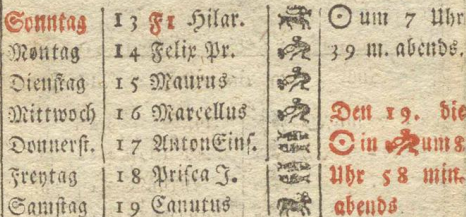 Sonntag 13 F1 Hilar. ☉ um 7 Uhr
Montag 14 Felix Pr. 39 m. abends.
Dienstag 15 Maurus
Mittwoch 16 Marcellus Den 19. die
Donnerst. 17 Anton Eins. ☉ in um 8
Freytag 18 Prisca J. Uhr 58 min.
Samstag 19 Canutus abends